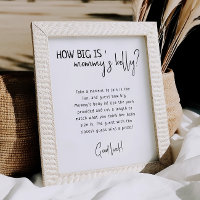 HOW BIG IS
mommy's belly?
Take a moment to join in the
fun, and guess how big
Mommy's belly is! Use the yarn
provided and cut a length to
match what you think her baby
bump is. The guest with the
closest guess wins a prize!
Good luck!